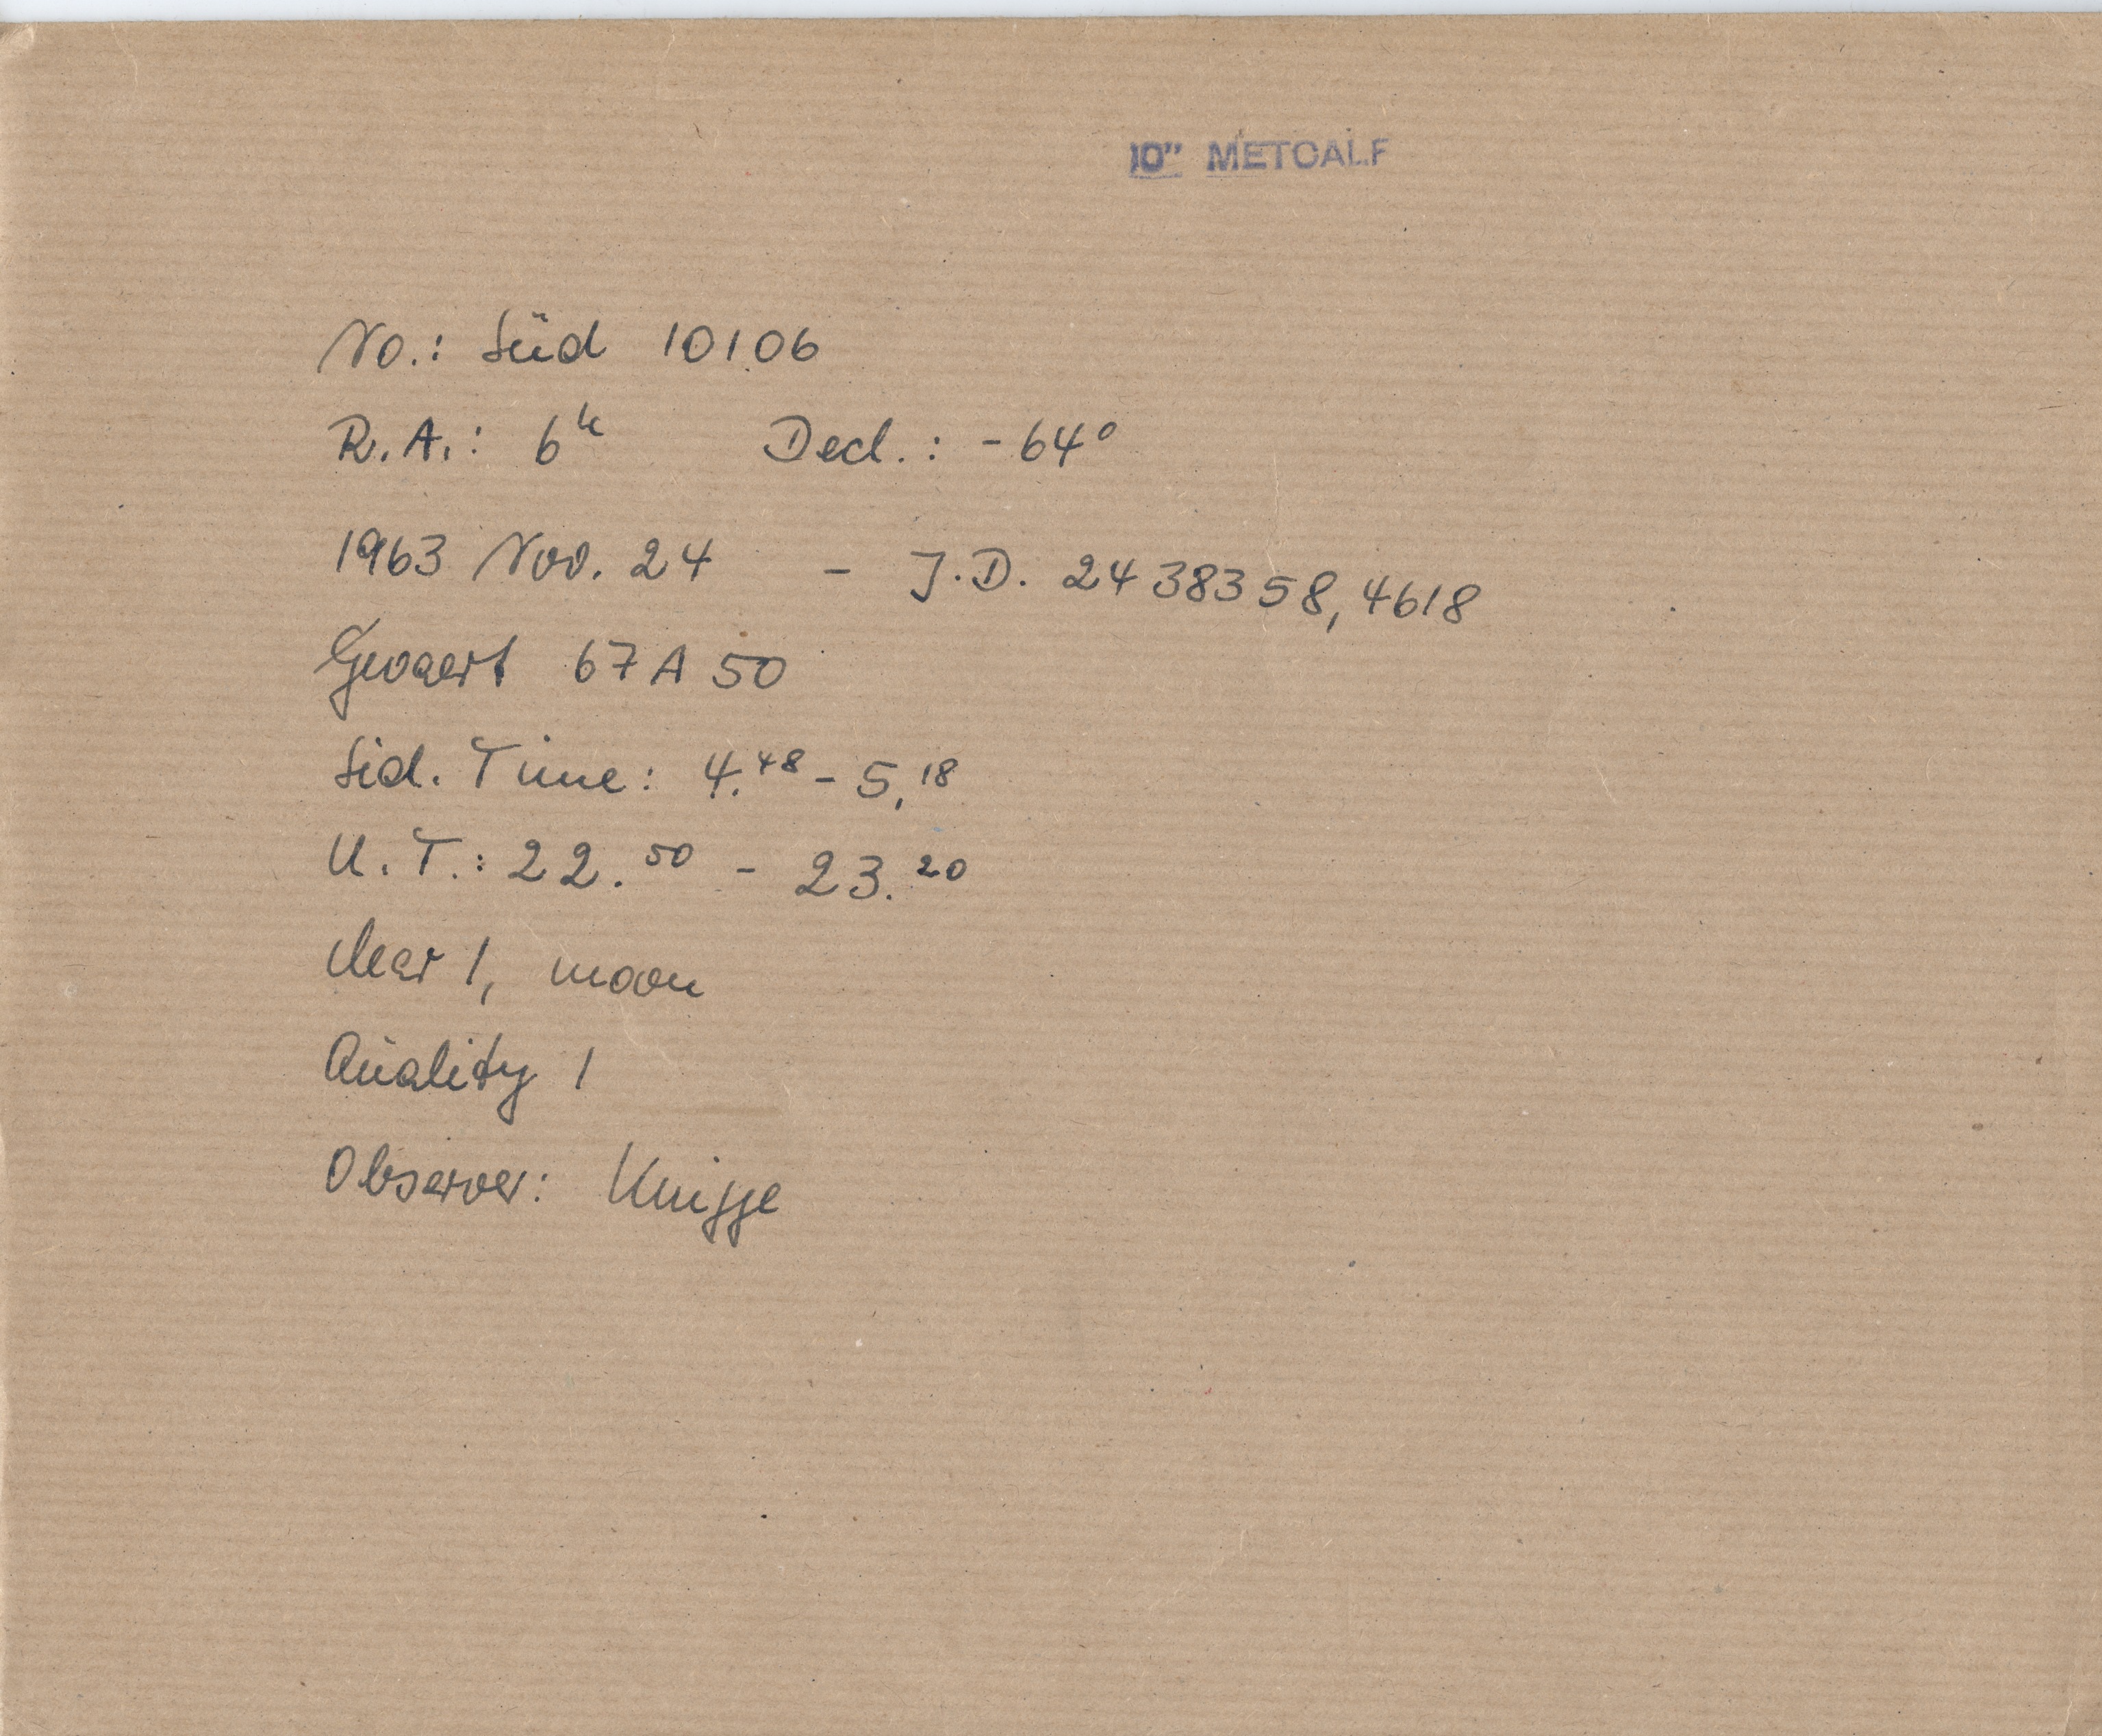 10" METCALF
No.: Süd 10106
R.A.: 6ʰ Decl.: -64°
1963 Nov. 24 - J.D. 2438358,4618
Gevaert 67A50
Sid. Time: 4.⁴⁸ - 5,¹⁸
U.T.: 22.⁵⁰ - 23.²⁰
clear 1, moon
Quality 1
Observer: Knigge